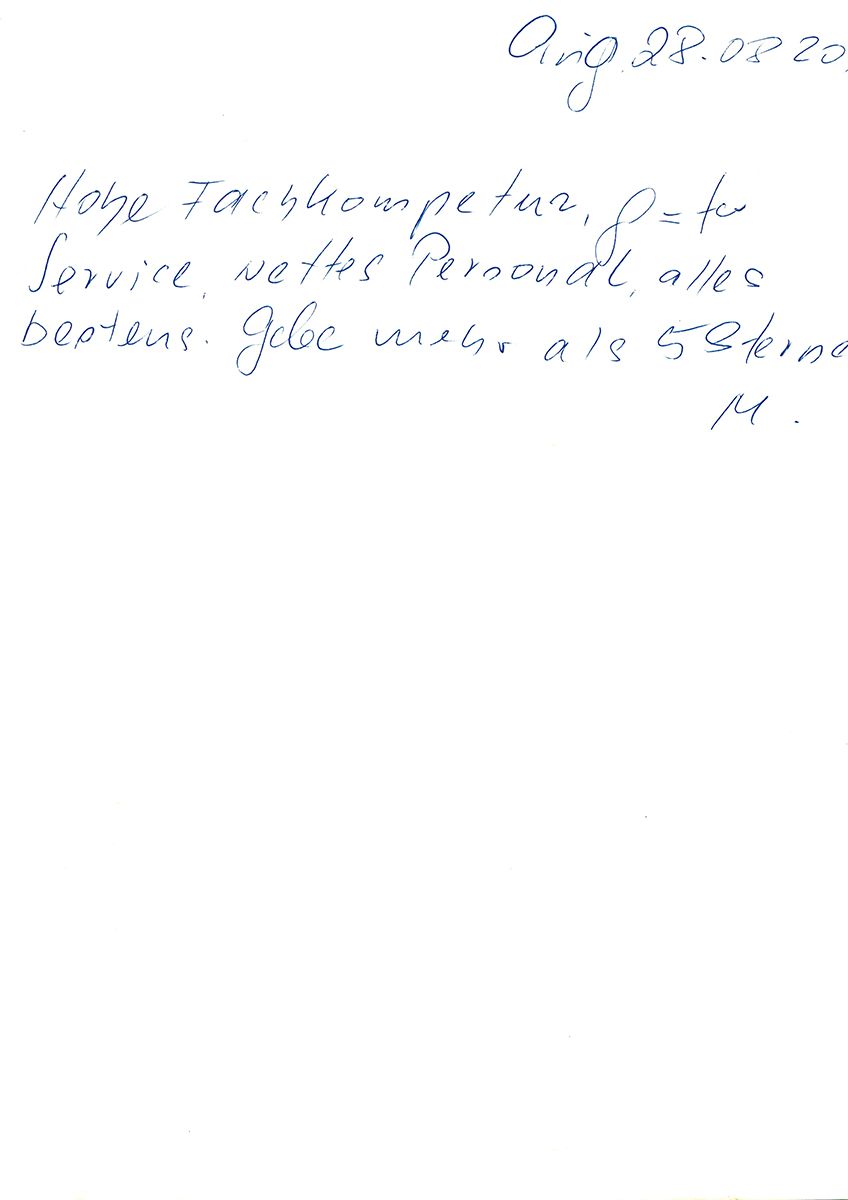 28.08 20
Hohe Fachkompetenz,
Service, nettes Personal, alles
bestens. Gebe mehr als 5 Sterne
M.